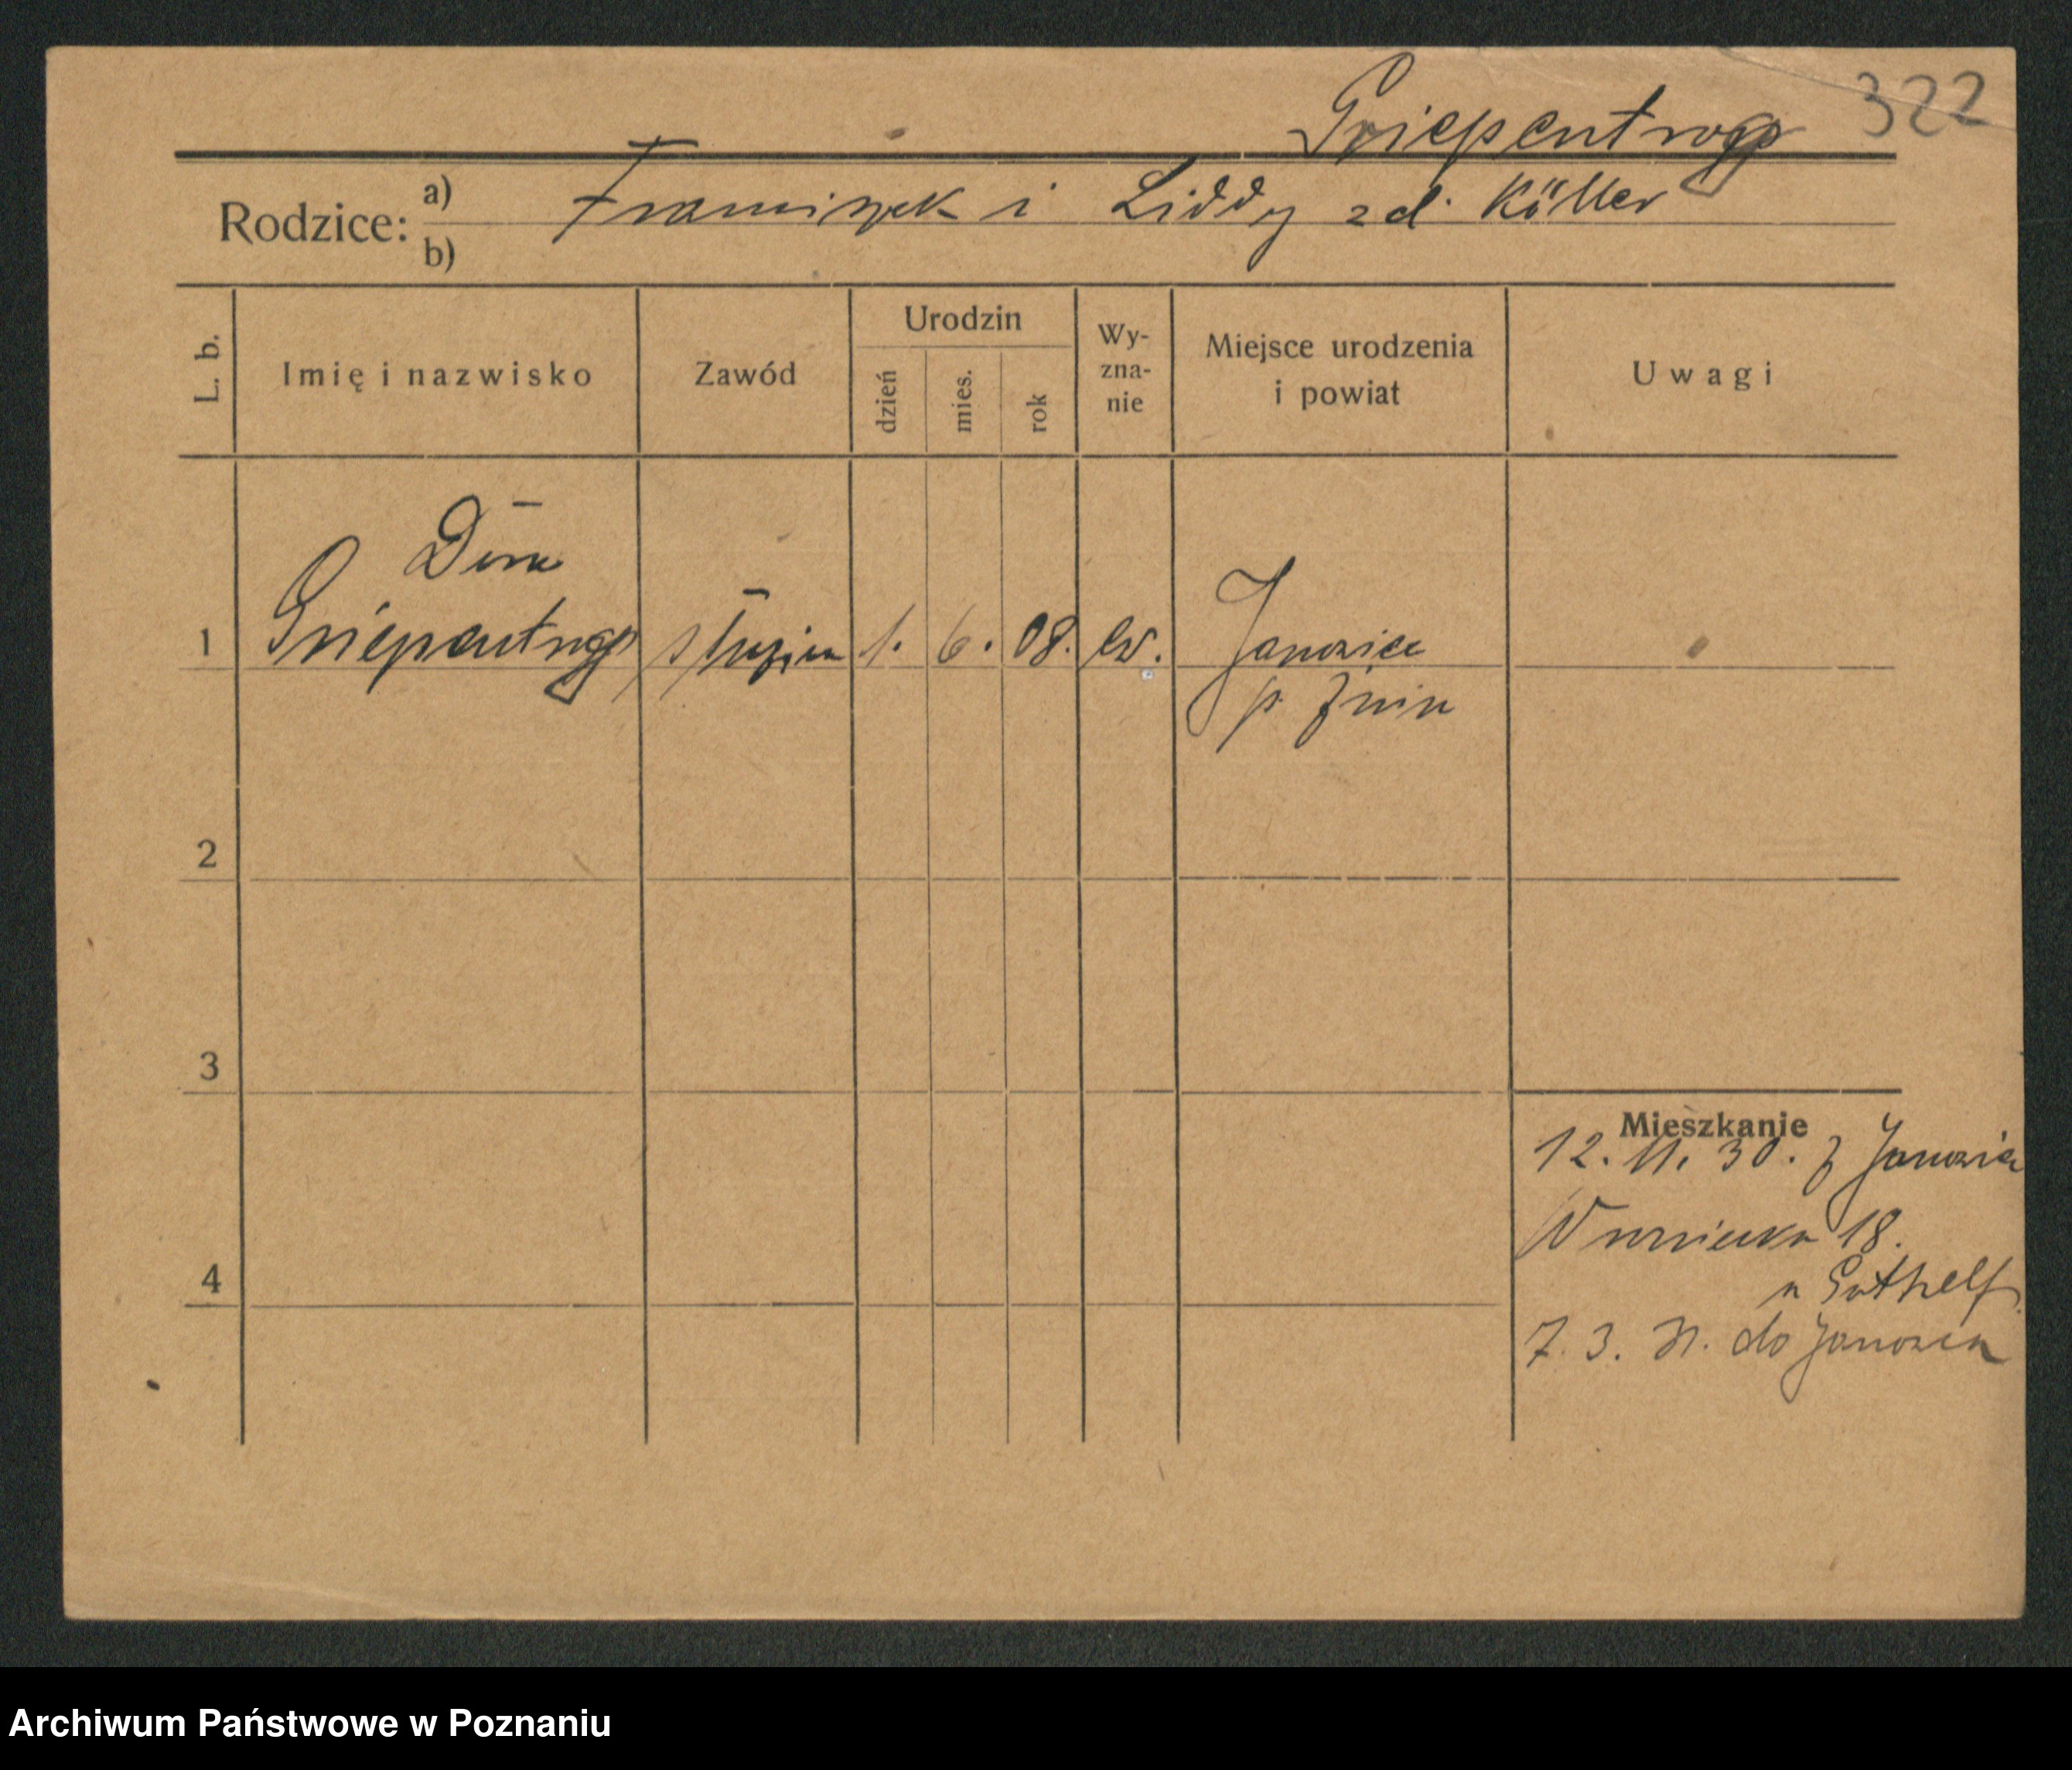 Griepentrog 322
Rodzice: a) Franciszek i Liddy zd. Köller
b)
L. b.
Imię i nazwisko
Zawód
Urodzin
dzień
mies.
rok
Wy-
zna-
nie
Miejsce urodzenia
i powiat
Uwagi
Dora
1 Griepentrog służąca 1. 6. 08. ew. Janowice
p. Żnin
2
3
4
Mieszkanie
12. 11. 30. z Janowica
18.
u Guthelf
7. 3. 31. do Janowca
Archiwum Państwowe w Poznaniu